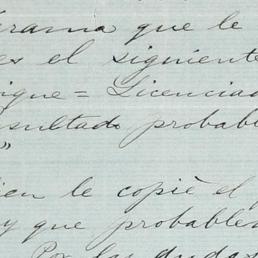 grama que le
es el siguiente
igue = Licenciad
esultado probabl
"
ien le copié el
y que probable
Por las dudas